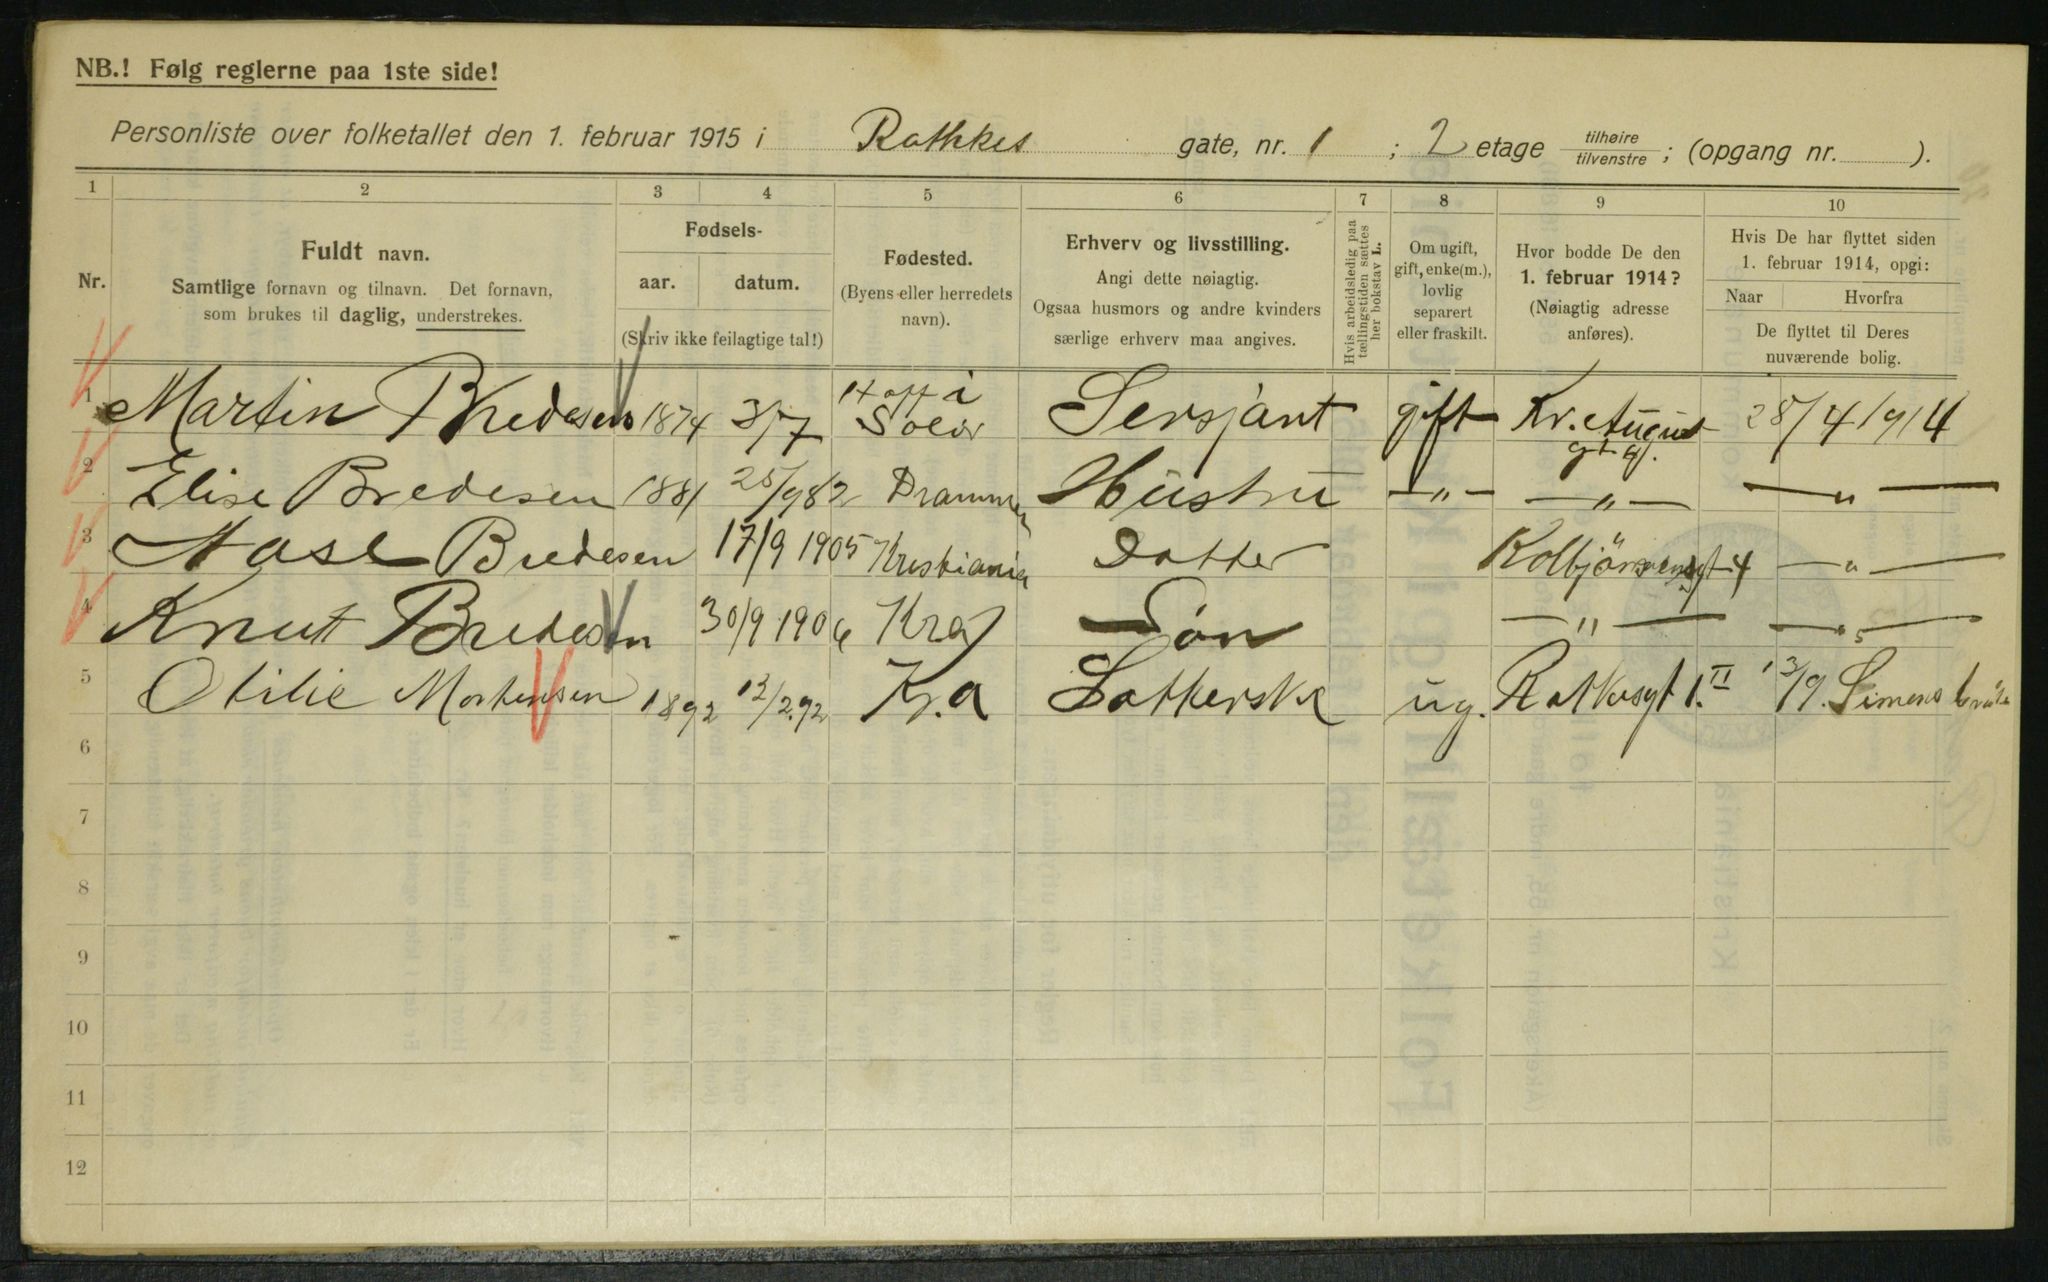 NB.! Følg reglerne paa 1ste side!
Personliste over folketallet den 1. februar 1915 i Rathkes gate, nr. 1 ; 2 etage tilhøire tilvenstre ; (opgang nr. ).
1 2 3 4 5 6 7 8 9 10
Nr.
Fuldt navn.
Samtlige fornavn og tilnavn. Det fornavn,
som brukes til daglig, understrekes.
Fødsels-
aar. datum.
(Skriv ikke feilagtige tal!)
Fødested.
(Byens eller herredets
navn).
Erhverv og livsstilling.
Angi dette nøiagtig.
Ogsaa husmors og andre kvinders
særlige erhverv maa angives.
Hvis arbeidsledig paa
tællingstiden sættes
her bokstav L.
Om ugift,
gift, enke(m.),
lovlig
separert
eller fraskilt.
Hvor bodde De den
1. februar 1914?
(Nøiagtig adresse
anføres).
Hvis De har flyttet siden
1. februar 1914, opgi:
Naar Hvorfra
De flyttet til Deres
nuværende bolig.
1 Martin Bredesen 1874 3/7 Hoff i Solør Sersjant gift Kr. August gt 28/4 1914
2 Elise Bredesen 1881 Drammen Hustru —"— —"— —"—
3 Aase Bredesen 17/9 1905 Kristiania Datter Kolbjörnsensgt 4 —"—
4 Knut Bredesen 30/9 1906 Kra Søn —"— —"—
5 Otilie Mortensen 1892 12/2 92 Kr.a ug. Ratkesgt 1. II 13/9. Simens
6
7
8
9
10
11
12